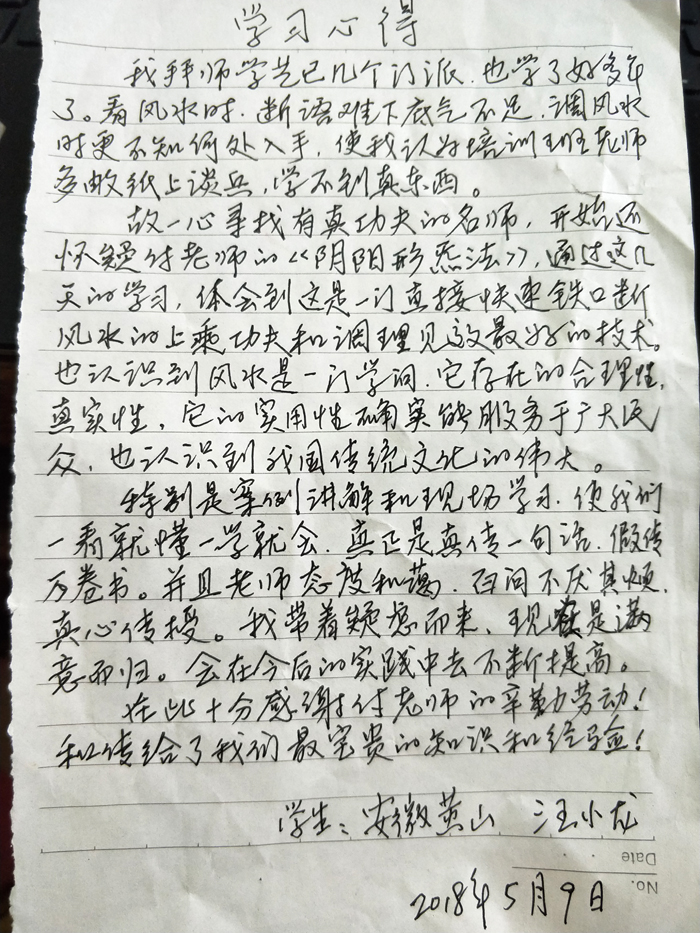 学习心得
我拜师学艺已几个门派,也学了好多年
了。看风水时,断语难下底气不足,调风水
时更不知何处入手,使我认为培训班老师
多收纸上谈兵,学不到真东西。
故一心寻找有真功夫的名师,开始还
怀疑付老师的《阴阳形炁法》,通过这几
天的学习,体会到这是一门直接快速铁口断
风水的上乘功夫和调理见效最好的技术。
也认识到风水是一门学问,它存在的合理性,
真实性,它的实用性确实能服务于广大民
众,也认识到我国传统文化的伟大。
特别是案例讲解和现场学习,使我们
一看就懂一学就会,真正是真传一句话,假传
万卷书。并且老师态度和蔼,百问不厌其烦,
真心传授。我带着疑虑而来,现在是满
意而归。会在今后的实践中去不断提高。
在此十分感谢付老师的辛勤劳动!
和传给了我们最宝贵的知识和经验!
学生:安徽黄山 汪小龙
Date
No.
2018年5月9日